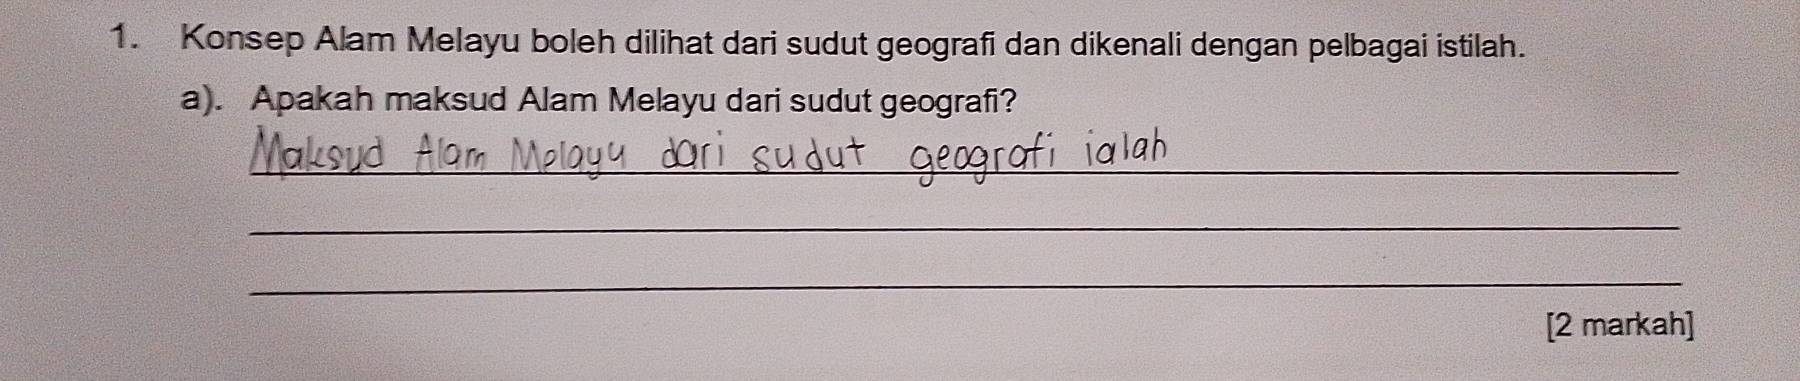 1. Konsep Alam Melayu boleh dilihat dari sudut geografi dan dikenali dengan pelbagai istilah.
a). Apakah maksud Alam Melayu dari sudut geografi?
Maksud Alam Melayu dari sudut geografi ialah
[2 markah]